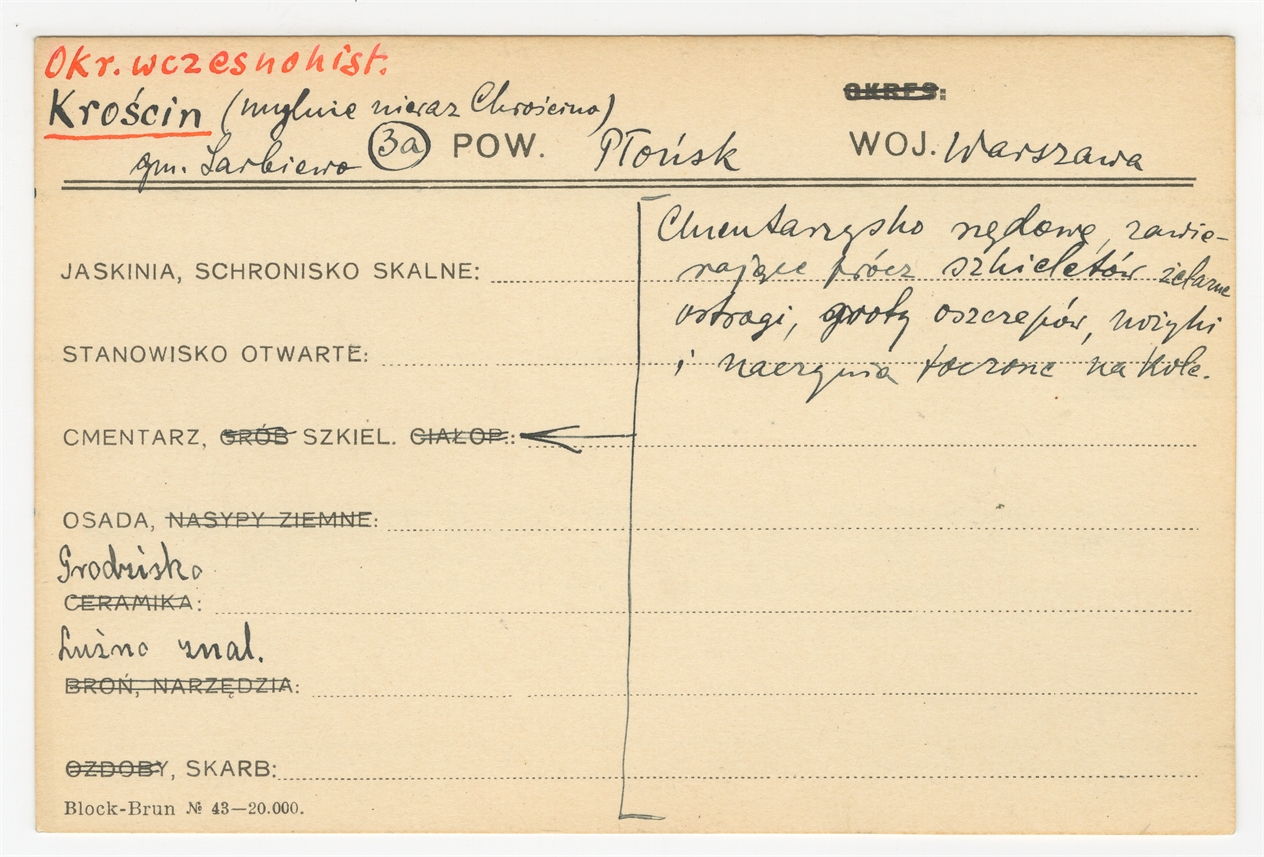 Okr. wczesnohist.
Krościn (mylnie nieraz Chrościno) OKRES:
gm. Sarbiewo 3a POW. Płońsk WOJ. Warszawa
Cmentarzysko rzędowe, zawie-
JASKINIA, SCHRONISKO SKALNE: rające prócz szkieletów żelazne
ostrogi, groty oszczepów, nożyki
STANOWISKO OTWARTE: i naczynia toczone na kole.
CMENTARZ, GRÓB SZKIEL. CIAŁOP.:
OSADA, NASYPY ZIEMNE:
Grodzisko
CERAMIKA:
Luźne znal.
BROŃ, NARZĘDZIA:
OZDOBY, SKARB:
Block-Brun № 43—20.000.